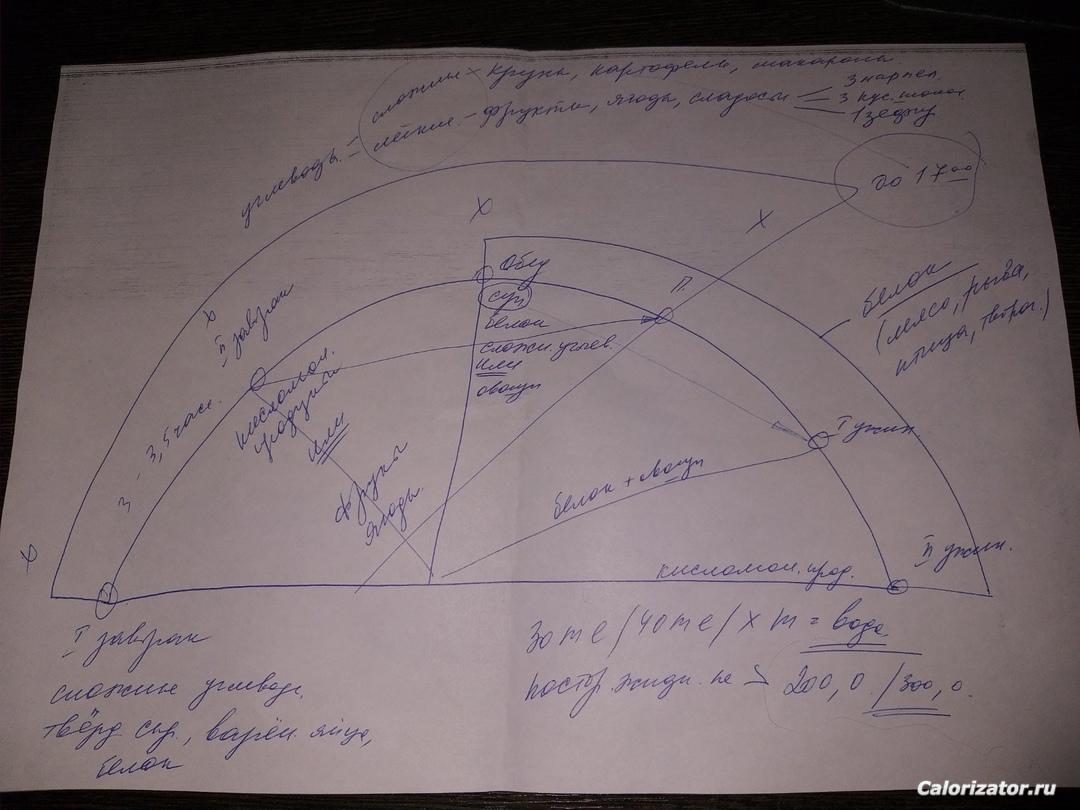 углеводы
сложные - крупы, картофель, макароны
лёгкие - фрукты, ягоды, сладости
3 кус. шокол.
1 зефир
до 17 00
х
х
х
х
Обед
суп
белок
сложн. углев.
или
овощи
П
белок
(мясо, рыба,
птица, творог.)
II завтрак
3 - 3,5 часа.
кисломол.
продукты
или
фрукты
ягоды.
I ужин
белок + овощи
II ужин.
кисломол. прод.
I завтрак
сложные углевод.
твёрд. сыр., варён. яйцо,
белок
30 ml / 40 ml / х m = вода
жидк. не > 200,0. / 300,0.
Calorizator.ru